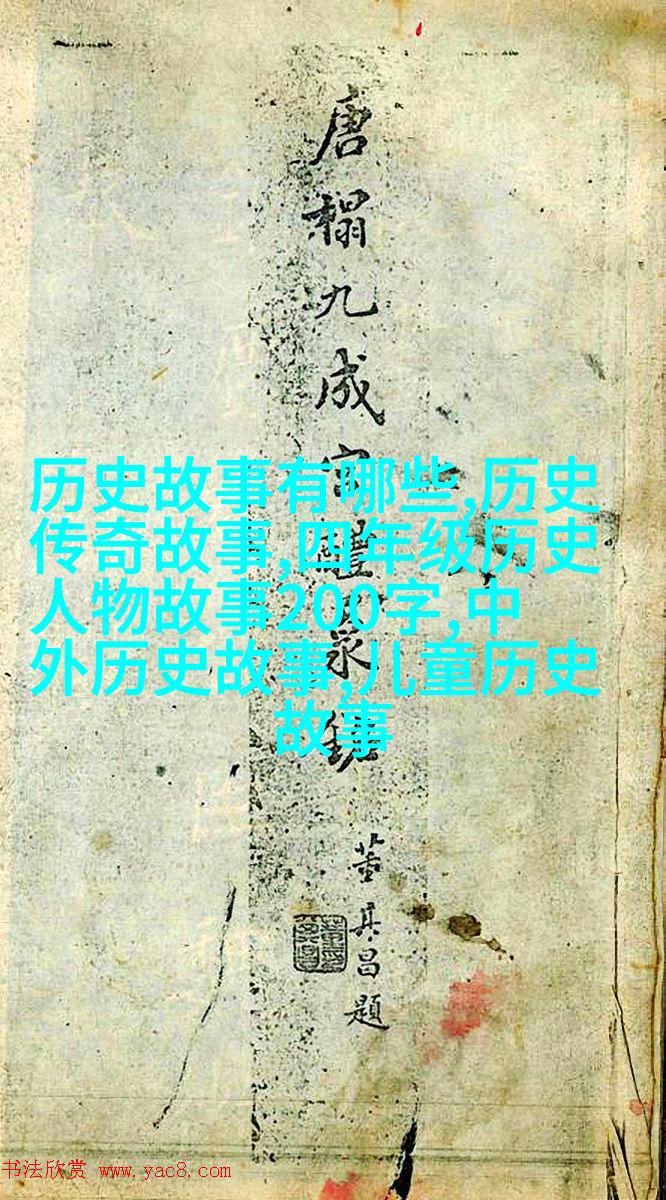 唐榻九成宫醴泉銘
董其昌題
历史故事有哪些,历史
传奇故事,四年级历史
人物故事200字,中
外历史故事,儿童历史
故事
书法欣赏 www.yac8.com